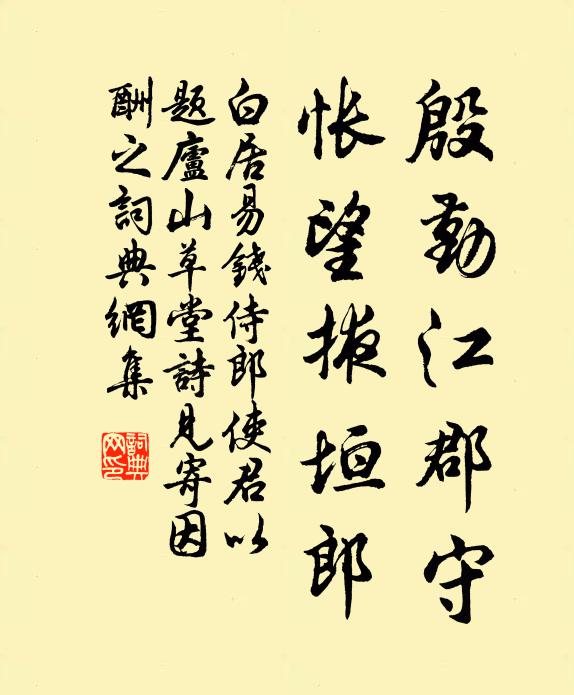 殷勤江郡守
悵望掖垣郎
白居易錢侍郎使君以
題廬山草堂詩見寄因
酬之詞典網集
詞典
网印